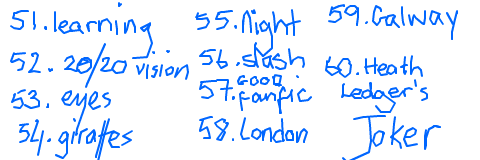 51. learning
52. 20/20 vision
53. eyes
54. giraffes
55. Night
56. slash
57. GOOD fanfic
58. London
59. Galway
60. Heath
Ledger's
Joker